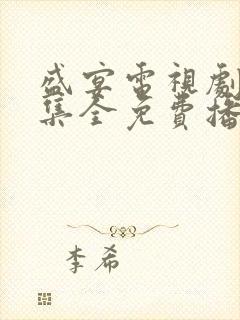 盛宴電視劇
集全免費播
李希